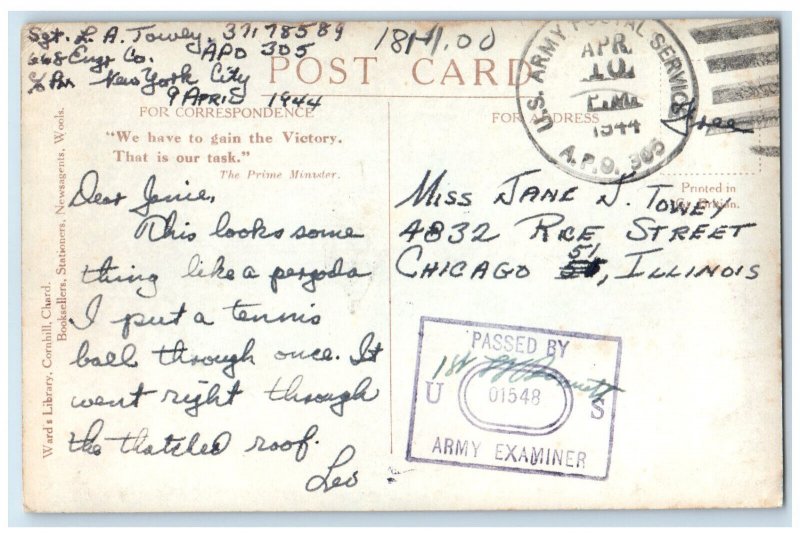 Sgt. L. A. Towey, 37178589
668 Engr Co. APO 305
c/o PM New York City
9 APRIL 1944
POST CARD
FOR CORRESPONDENCE
"We have to gain the Victory.
That is our task."
The Prime Minister.
Dear Janie,
This looks some
thing like a pergoda
I put a tennis
ball through once. It
went right through
the thatched roof.
Leo
Ward's Library, Cornhill, Chard.
Booksellers, Stationers, Newsagents, Wools.
FOR ADDRESS
U.S. ARMY POSTAL SERVICE
APR
10
1944
A.P.O. 305
Free
Printed in
Gt. Britain.
MISS JANE J. TOWEY
4832 RCE STREET
CHICAGO 51, ILLINOIS
PASSED BY
U 01548 S
ARMY EXAMINER